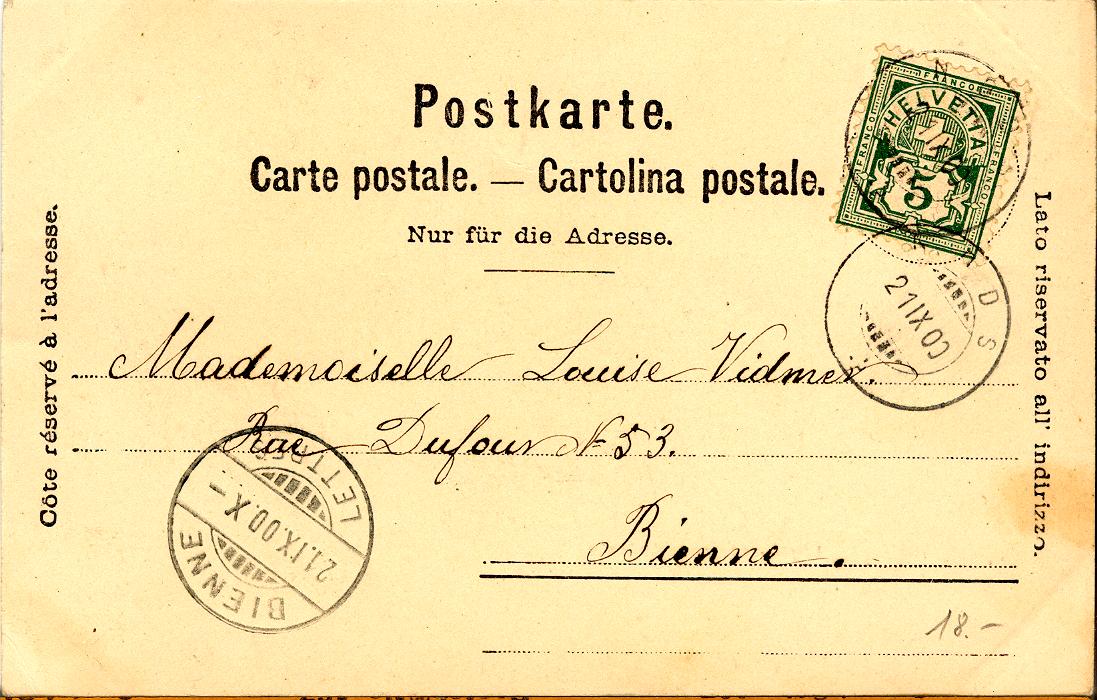 Postkarte.
Carte postale. — Cartolina postale.
Nur für die Adresse.
Côte réservé à l'adresse.
Lato riservato all' indirizzo.
FRANCO
FRANCO
FRANCO
HELVETIA
5
21 IX 00
Mademoiselle Louise Vidmer.
Rue Dufour No 53.
Bienne.
BIENNE
21.IX.00.X–
LETTR
18.–